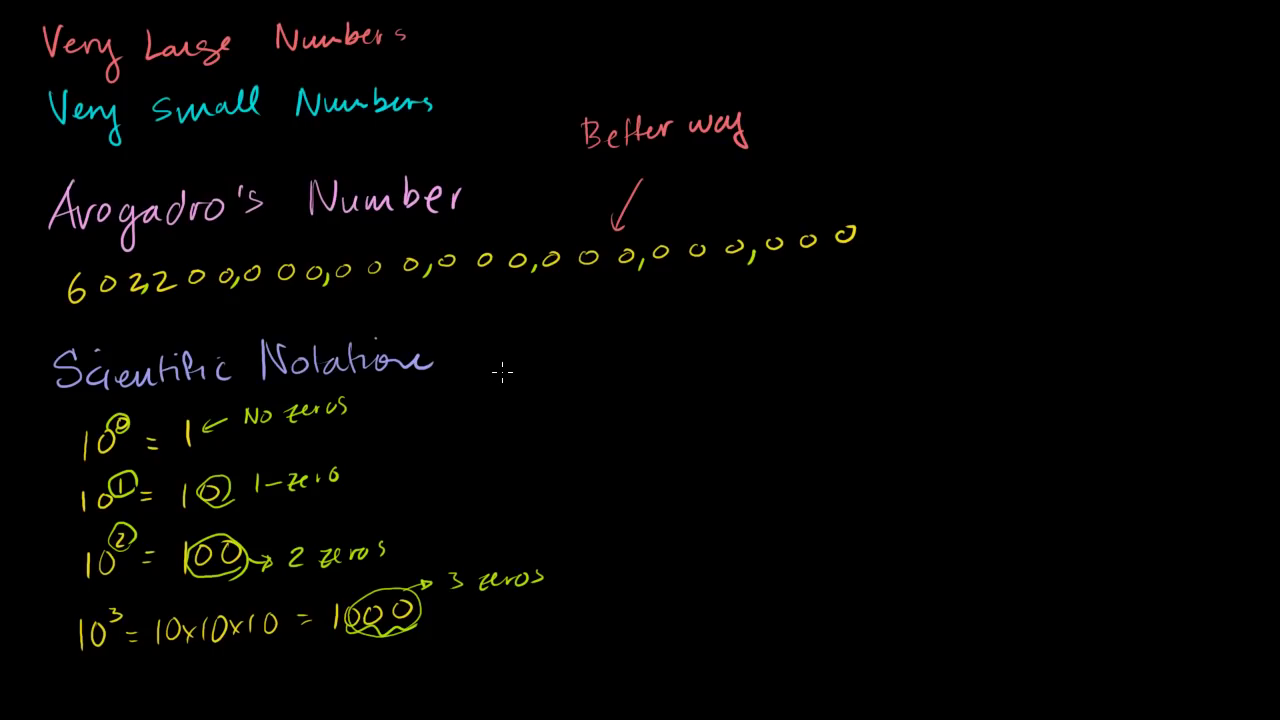 Very Large Numbers
Very Small Numbers
Better way
Avogadro's Number
602,200,000,000,000,000,000,000
Scientific Notation
10⁰ = 1 ← No zeros
10¹ = 10 1-zero
10² = 100 → 2 zeros
10³ = 10×10×10 = 1000 → 3 zeros